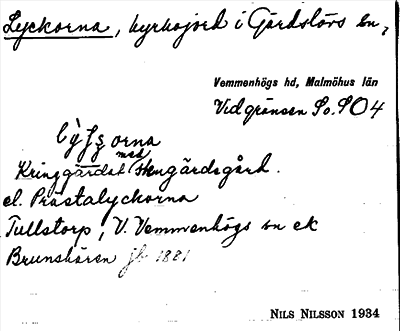 Lyckorna, kyrkojord i Gärdslövs sn,
Vemmenhögs hd, Malmöhus län
Vidgränsen So. SO4
orna
Kringgärdat med stengärdsgård.
el. Prästalyckorna
Tullstorp, V. Vemmenhögs sn ek
Brunshären jb 1881
NILS NILSSON 1934